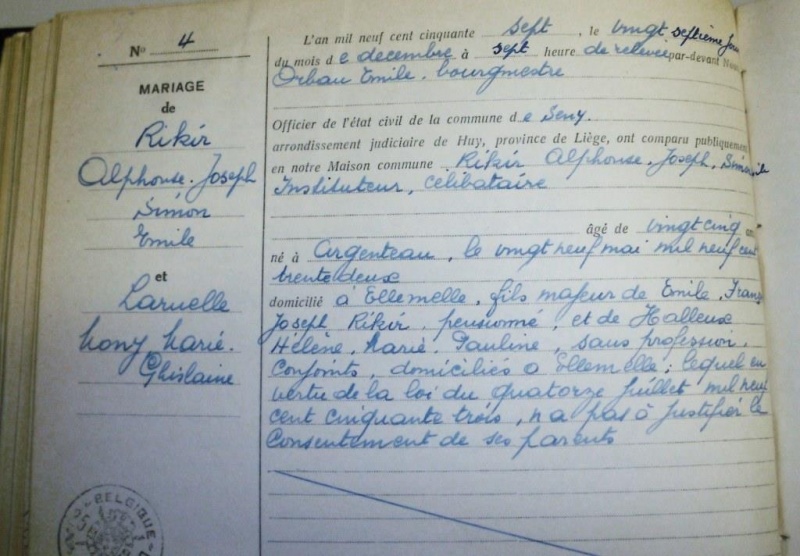 No 4
MARIAGE
de
Rikir
Alphonse. Joseph
Simon
Emile
et
Laruelle
Mony Marie.
Ghislaine
L'an mil neuf cent cinquante sept, le vingt septième jour
du mois de decembre à sept heure de relevée par-devant Nous
Orban Emile. bourgmestre
Officier de l'état civil de la commune de Seny.
arrondissement judiciaire de Huy, province de Liège, ont comparu publiquement
en notre Maison commune Rikir Alphonse, Joseph, Simon
Instituteur, célibataire
âgé de vingt cinq ans
né à Argenteau, le vingt neuf mai mil neuf cent
trente deux
domicilié à Ellemelle, fils majeur de Emile, Franç
Joseph Rikir, pensionné, et de Halleux
Hélène, Marie. Pauline, sans profession,
Conjoints, domiciliés à Ellemelle; lequel en
vertu de la loi du quatorze juillet mil neuf
cent cinquante trois, n'a pas à justifier le
Consentement de ses parents
BELGIQUE